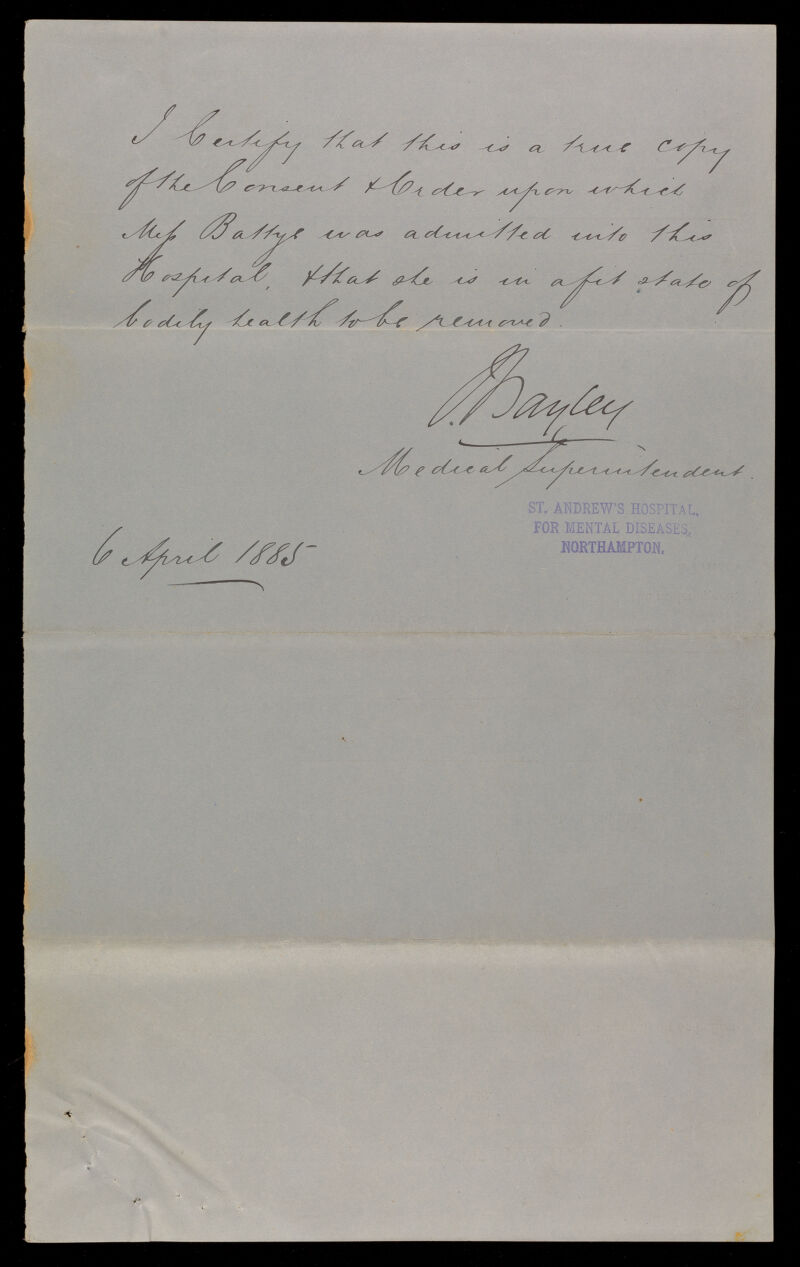 I Certify that this is a true copy
of the Consent & Order upon which
Miss Battye was admitted into this
Hospital, & that she is in a fit state of
bodily health to be removed.
J. Bayley
Medical Superintendent.
ST. ANDREW'S HOSPITAL,
FOR MENTAL DISEASES,
NORTHAMPTON.
6 April 1885